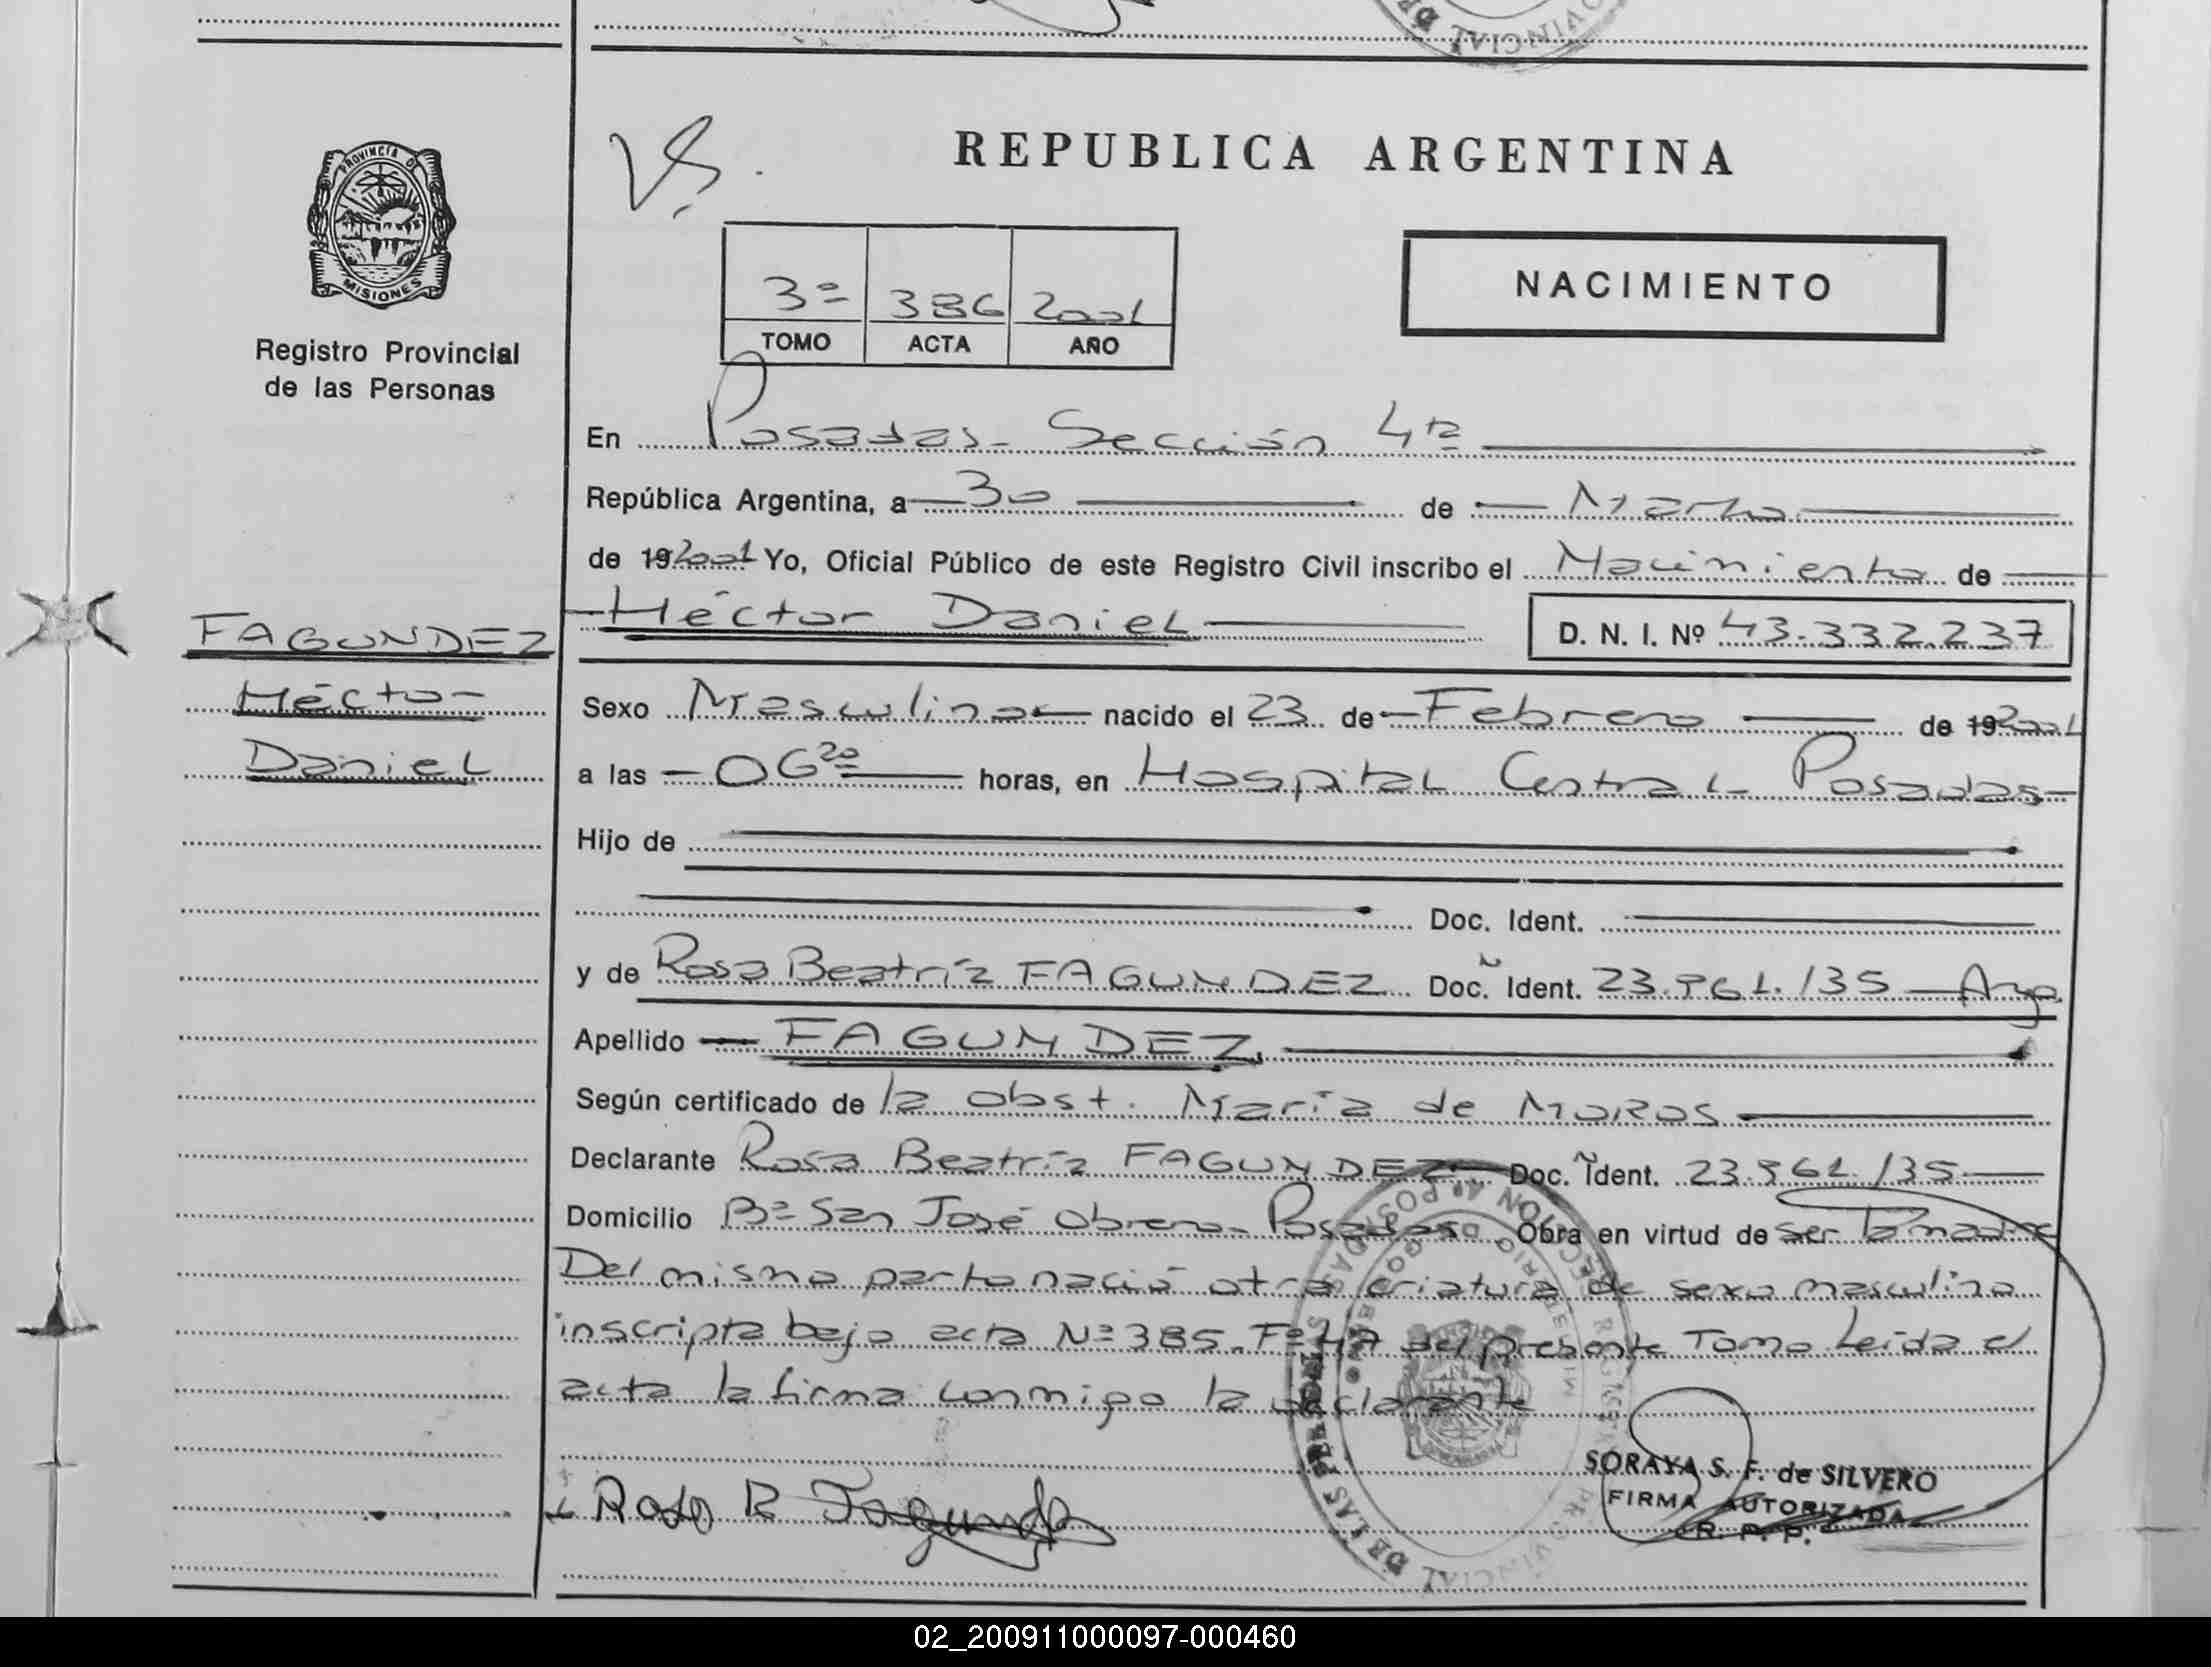 REPUBLICA ARGENTINA
PROVINCIA DE
MISIONES
Registro Provincial
de las Personas
3º 386 2001
TOMO ACTA AÑO
NACIMIENTO
En Posadas - Sección 4ta
República Argentina, a 30 de Marzo
de 19 2001 Yo, Oficial Público de este Registro Civil inscribo el Nacimiento de
Héctor Daniel D. N. I. Nº 43.332.237
FAGUNDEZ
Héctor
Daniel
Sexo Masculino nacido el 23 de Febrero de 19 2001
a las 06 20 horas, en Hospital Central - Posadas
Hijo de
Doc. Ident.
y de Rosa Beatríz FAGUNDEZ Doc. Ident. Arg.
Apellido FAGUNDEZ
Según certificado de la obst. María de MOROS
Declarante Rosa Beatríz FAGUNDEZ Doc. Ident.
Domicilio Bº San José Obrero - Posadas Obra en virtud de ser la madre
Del mismo parto nació otra criatura de sexo masculino
inscripta bajo acta Nº 385. Fº del presente Tomo Leída el
acta la firma conmigo la declarante
Rosa B Fagundez
SORAYA S. F. de SILVERO
FIRMA AUTORIZADA
R. P. P.
02_200911000097-000460